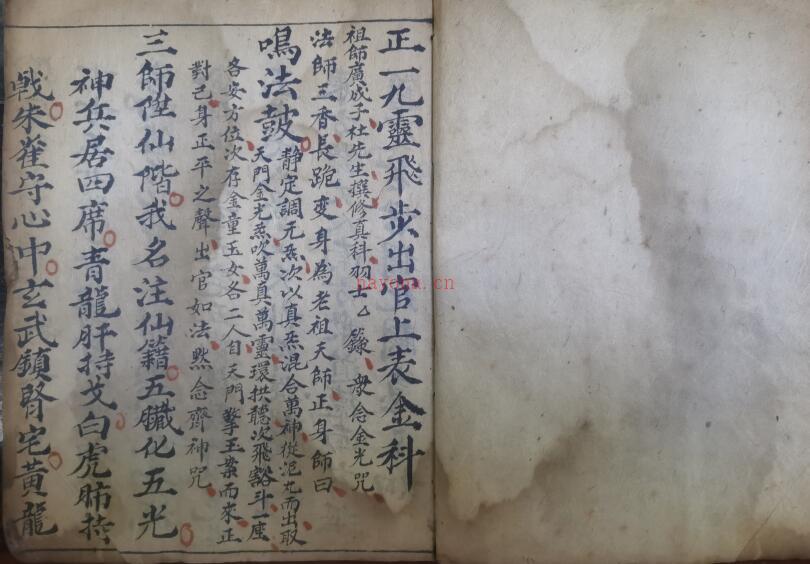 正一九靈飛步出官上表金科
祖師廣成子杜先生撰修真科羽士厶籙 衆念金光咒
法師三香長跪变身為老祖天師正身師曰
鳴法鼓
静定調元炁次以真炁混合萬神從泥丸而出取
天門金光炁吹萬真萬靈環拱聽次飛豁斗一座
各安方位次存金童玉女各二人自天門擎玉案而來正
對己身正平之聲出官如法黙念齊神咒
三師陞仙階我名注仙籍五臟化五光
神兵居四席青龍肝持戈白虎肺持
戟朱雀守心中玄武鎮腎宅黃龍
nayona.cn